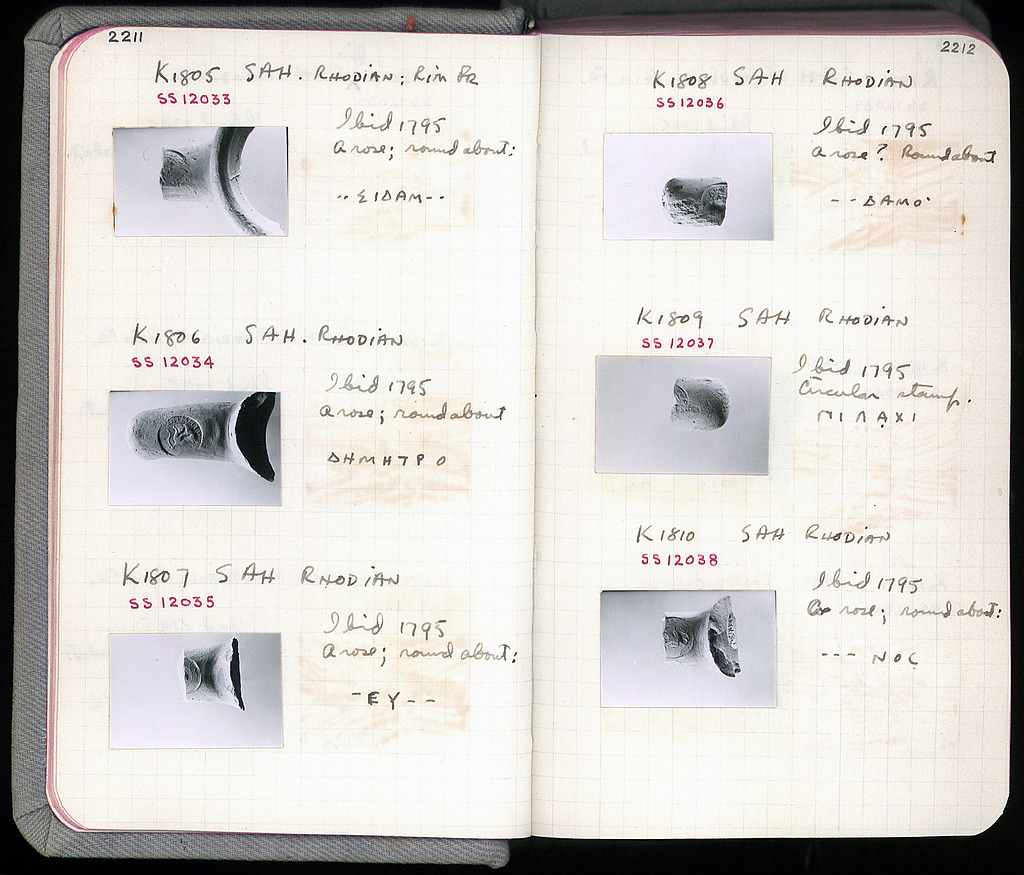 2211
K1805 SAH. RHODIAN; Rim Fr
SS 12033
Ibid 1795
A rose; round about:
..ΣIDAM--
K1806 SAH. RHODIAN
SS 12034
Ibid 1795
A rose; round about
ΔHMHTPO
K1807 SAH RHODIAN
SS 12035
Ibid 1795
A rose; round about:
-EY--
2212
K1808 SAH RHODIAN
SS 12036
Ibid 1795
A rose? Round about
--ΔAMO·
K1809 SAH RHODIAN
SS 12037
Ibid 1795
Circular stamp.
K1810 SAH RHODIAN
SS 12038
Ibid 1795
rose; round about:
--- NOC